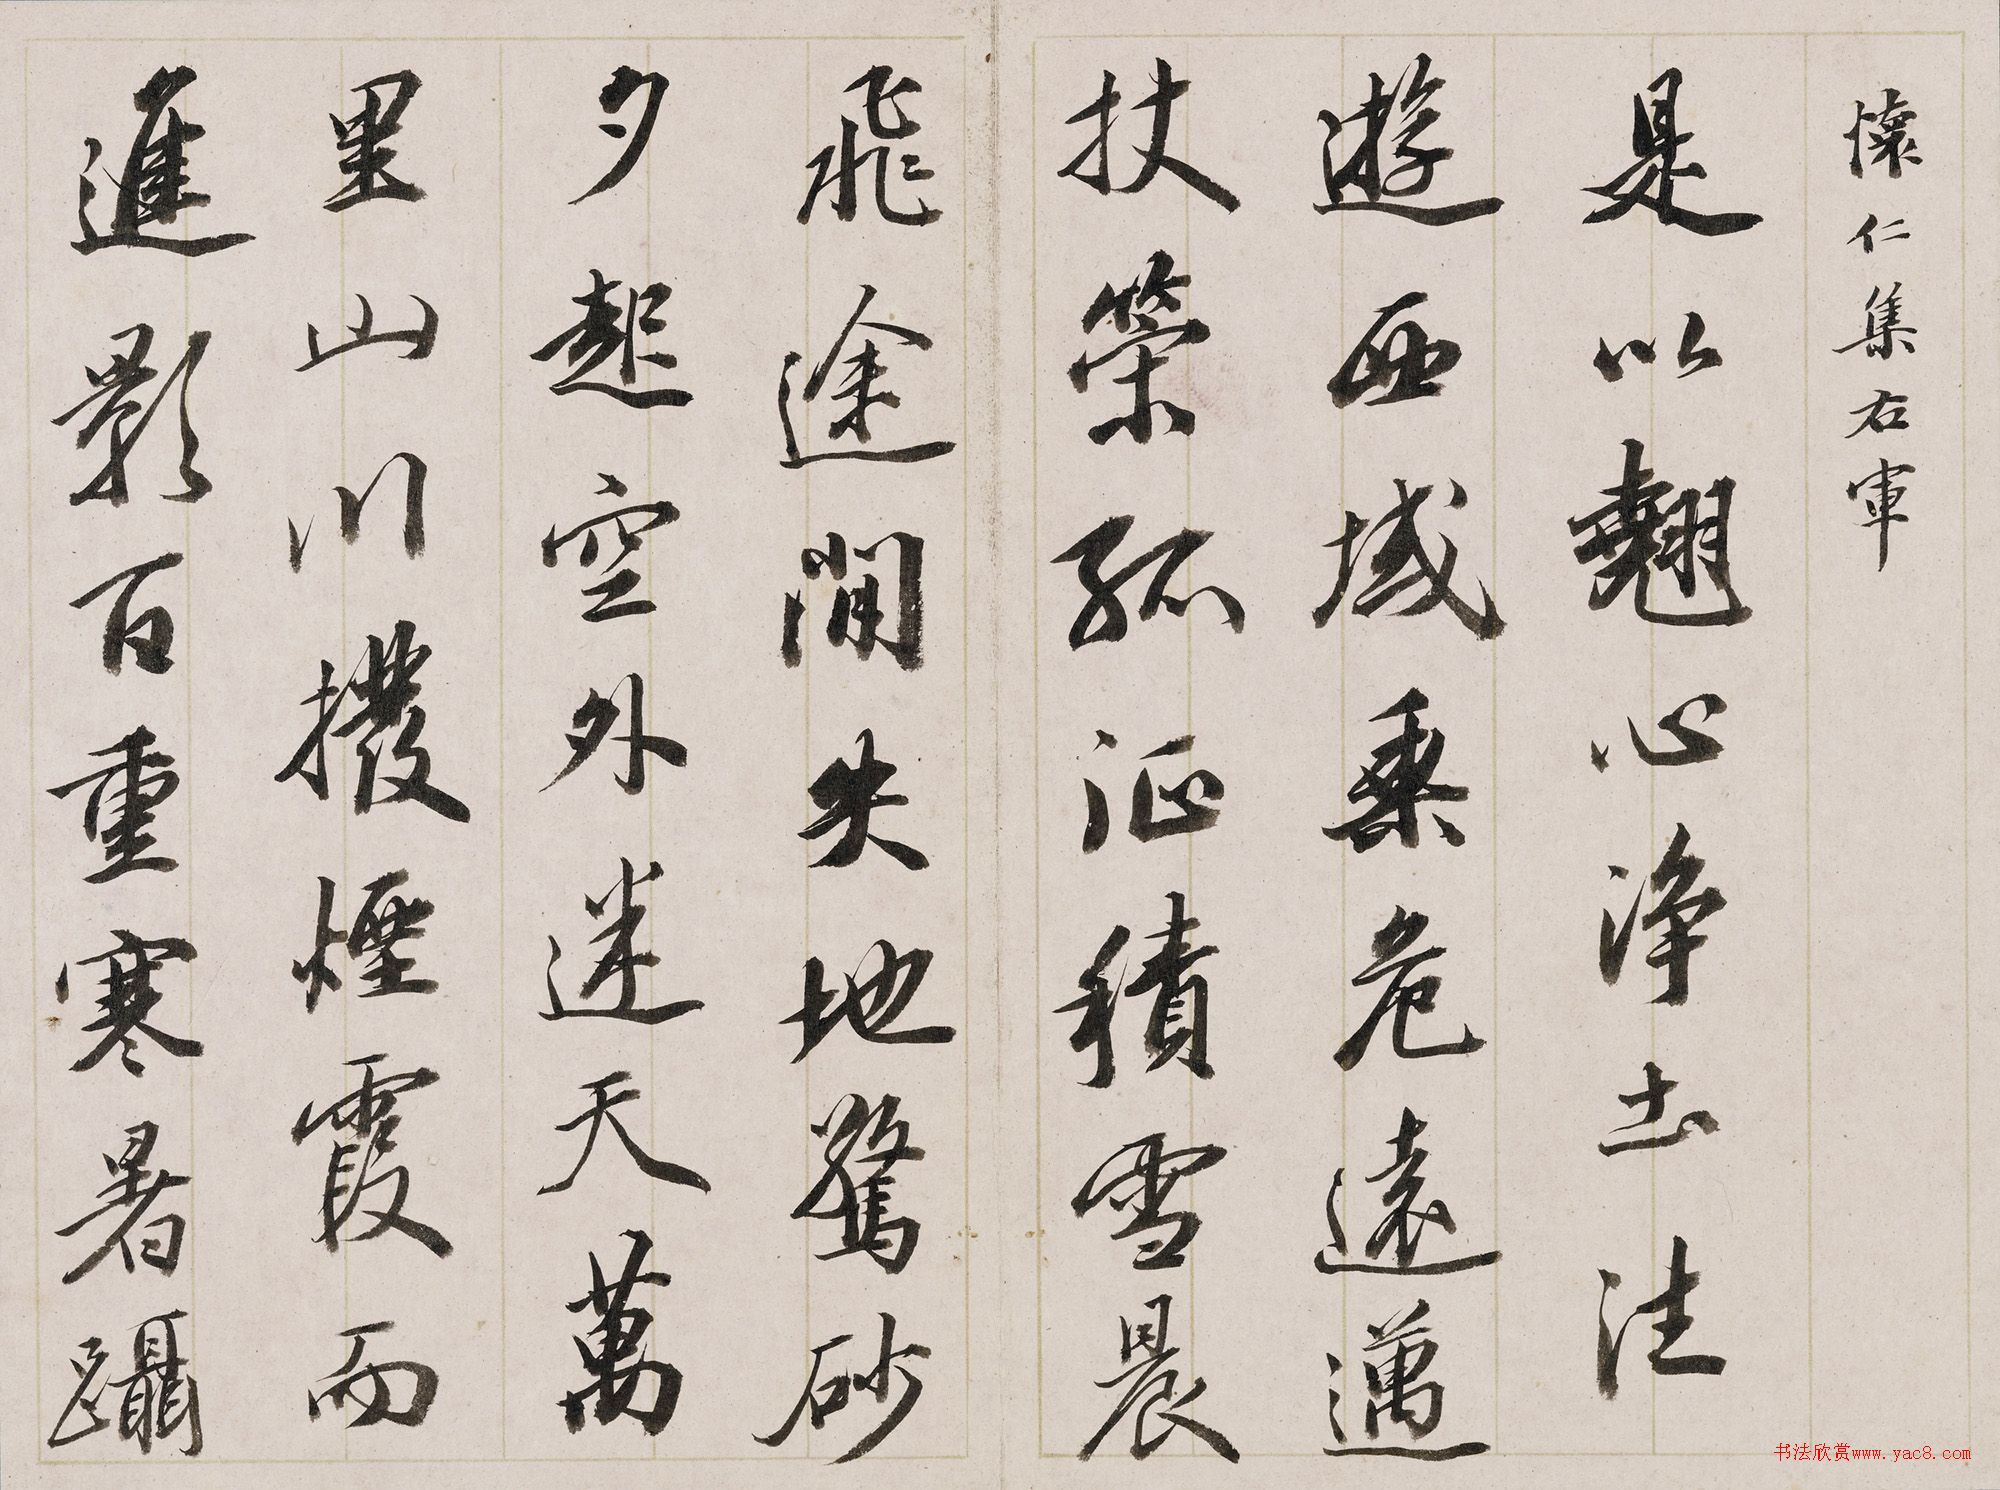 懷仁集右軍
是以翹心淨土法
遊西域乗危遠邁
杖策孤征積雪晨
飛途間失地驚砂
夕起空外迷天萬
里山川撥煙霞而
進影百重寒暑躡
书法欣赏www.yac8.com